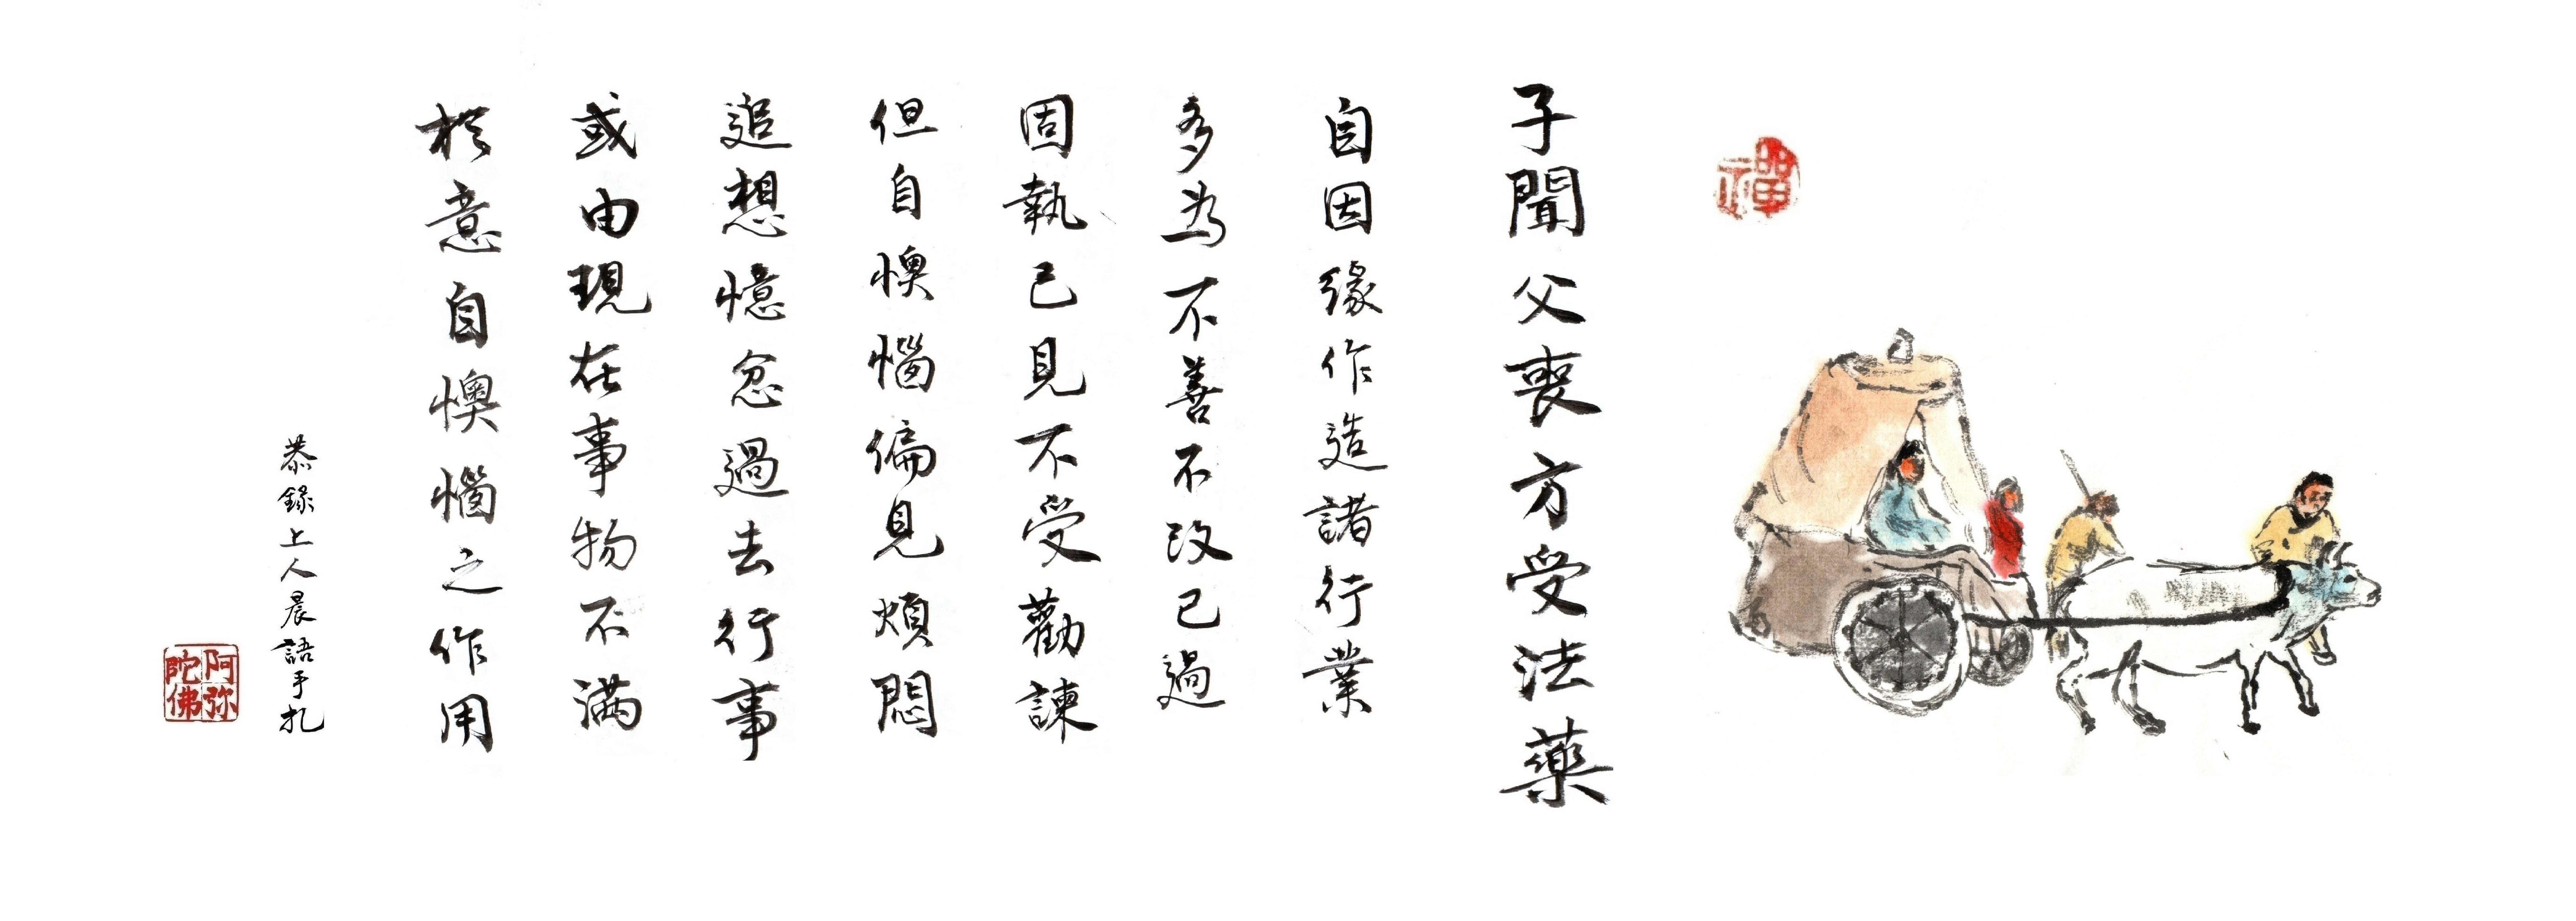 禪
子聞父喪方受法藥
自因緣作造諸行業
多為不善不改己過
固執己見不受勸諫
但自懊惱偏見煩悶
追想憶忿過去行事
或由現在事物不滿
於意自懊惱之作用
恭錄上人晨語手札
阿弥
陀佛